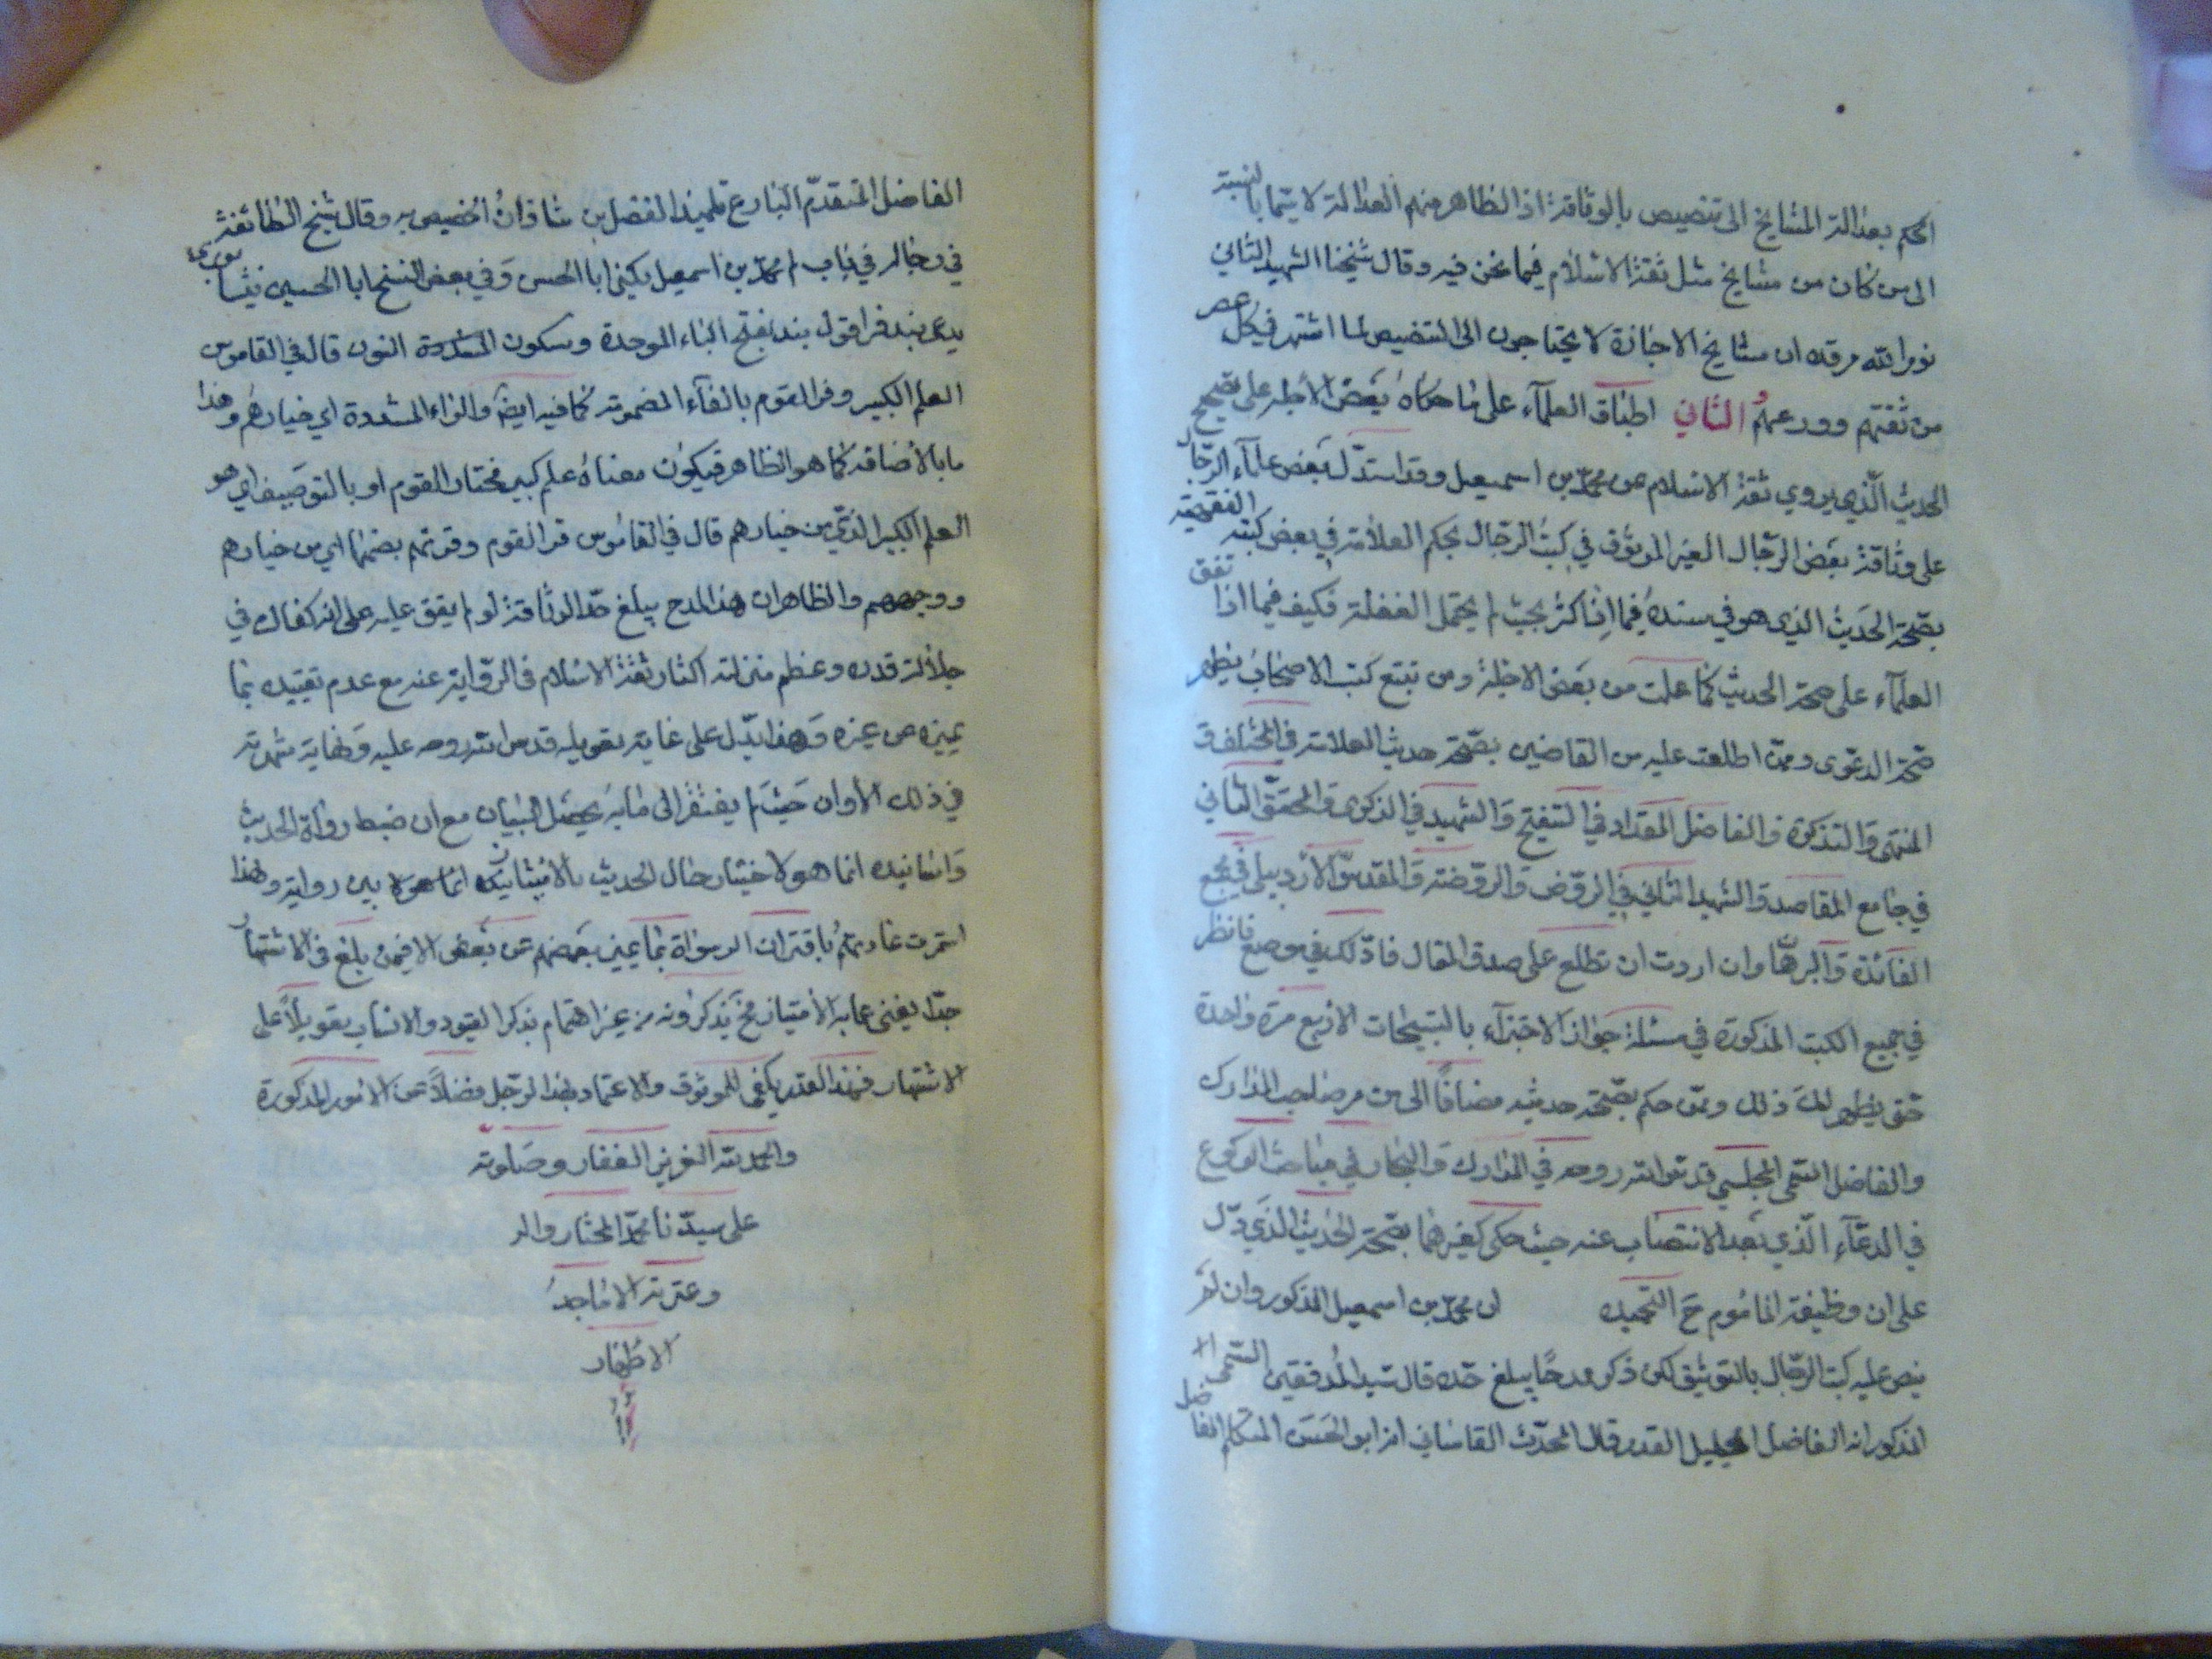 الحكم بعدالة المشايخ الى تنصيص بالوثاقة اذ الظاهر منهم العدالة لا يتما بالنسبة
الى من كان من مشايخ مثل ثقة الاسلام فيما نحن فيه وقال شيخنا الشهيد الثاني
نور الله مرقده ان مشايخ الاجازة لا يحتاجون الى التنصيص لما اشتهر في كل عصر
من ثقتهم وورعهم الثاني اطباق العلمآء على ما حكاه بعض الأجلة على تصحيح
الحديث الّذي يروي ثقة الاسلام عن محمد بن اسمعيل وقد استدلّ بعض علمآء الرّجال
على وثاقة بعض الرجّال الغير الموثوق في كتب الرجال بحكم العلّامة في بعض كتبه الفقهية
بصحّة الحديث الذي هو في سنده فيما اذا كثر بحيث لم يحتمل الغفلة فكيف فيما اذا تفق
العلمآء على صحة الحديث كما علمت من بعض الاجلة ومن تتبع كتب الاصحاب يظهر
صحة الدعوى وممن اطلعت عليه من القاضين بصّحة حديثه العلامة في المختلف و
المنتهى والتذكرة والفاضل المقداد في التنقيح والشهيد في الذكرى والمحقق الثاني
في جامع المقاصد والشهيد الثاني في الروض والروضة والمقدس الأردبيلي في مجمع
الفائدة والبرهان وان اردت ان تطلع على صدق المقال فاذلك في موضع فانظر
في جميع الكتب المذكورة في مسئلة جواز الاجتزآء بالتسبيحات الاربع مرة واحدة
حتى يظهر لك ذلك وممن حكم بصّحة حديثه مضافًا الى من مر صاحب المدارك
والفاضل التقى المجلسي قدس الله روحه في المدارك والبحار في مباحث الركوع
في الدعآء الّذي بعد الانتصاب عنه حيث حكى كغيرهما بصّحة الحديث الّذي دلّ
على ان وظيفة المأموم ح التحميد ان محمد بن اسمعيل المذكور وان لم
ينص عليه كتب الرجّال بالتوثيق لكن ذكر مدحًا يبلغ حدّه قال سيد المدققين السمى الا
المذكور انه الفاضل الجليل القدر وقال المحدّث القاساني انه ابو الحسن المتكلم الفاضل
الفاضل المتقدّم البارع تلميذ الفضل بن شاذان الخصيص به وقال شيخ الطائفة
في رجاله في باب لم محمد بن اسمعيل يكنى ابا الحسن وفي بعض النسخ ابا الحسين نيشابوري
يدعى بندفر اقول بند بفتح الباء الموحدة وسكون المشددة النون قال في القاموس
العلم الكبير وفر القوم بالفآء المضمومة كما فيه ايضًا والراء المشددة اي خيارهم وهذا
ما بالاضافة كما هو الظاهر فيكون معناه علم كبير مختار القوم او بالتوصيف اي هو
العلم الكبير الذي من خيارهم قال في القاموس فر القوم وفرتهم بضمهما اي من خيارهم
ووجههم والظاهر ان هذا المدح يبلغ حدّ الوثاقة لو لم يفق عليه على انه كفاك في
جلالة قدره وعظم منزلته اكثار ثقة الاسلام في الرّواية عنه مع عدم تقييده بما
يميزه عن غيره وهذا يدّل على غاية تعويله قدس الله روحه عليه ونهاية شهرته
في ذلك الأوان حيث لم يفتقر الى ما به يحصل البيان مع ان ضبط رواة الحديث
واسانيده انما هو لاختيار حال الحديث بالانتساب انما هو لا بين رواته ولهذا
استمرت عادتهم باقتران الرواة بما يميز بعضهم عن بعض الا فيمن بلغ في الاشتهار
حدّا يغنى عما به الأمتياز فح يذكرونه من غير اهتمام بذكر القيود والانساب تعويلاً على
الاشتهار فهذا القدر يكفي للوثوق والاعتماد بهذا الرجل فضلاً عن الامور المذكورة
والحمد لله العزيز الغفار وصلوته
على سيدنا محمد المختار واله
وعترته الاماجد
الاطهار